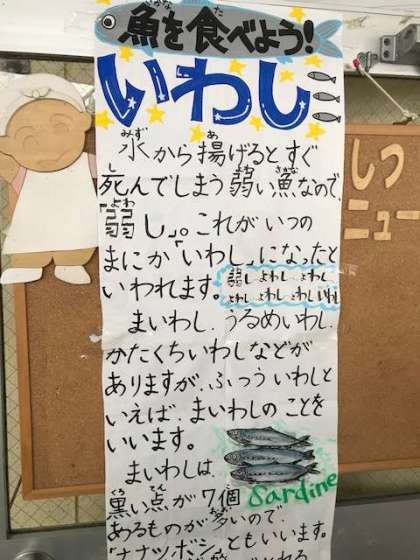 魚を食べよう!
さかな た
いわし
みず あ
水から揚げるとすぐ
し よわ さかな
死んでしまう弱い魚なので、
よわ
「弱し」。これがいつの
まにか「いわし」になったと
いわれます。
弱し よわし よわし
よわし よわし よわし いわし
まいわし、うるめいわし、
かたくちいわしなどが
ありますが、ふつういわしと
いえば、まいわしのことを
いいます。
まいわしは、
Sardine
くろ てん こ
黒い点が7個
おお
あるものが多いので、
「ナナツボシ」ともいいます。
しつ
ニュー